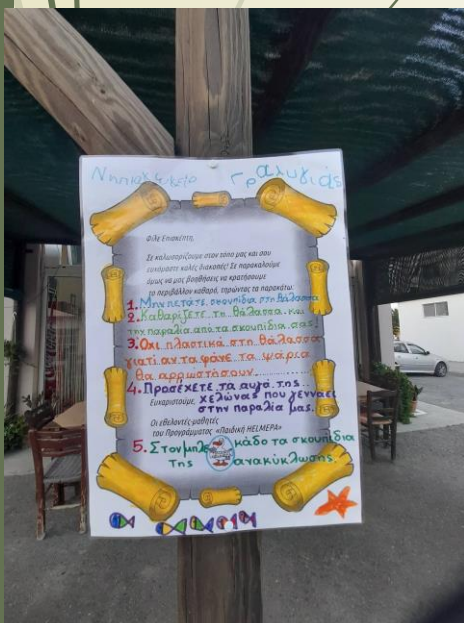 Νηπιαγωγείο Γραλυγιάς
Φίλε Επισκέπτη,
Σε καλωσορίζουμε στον τόπο μας και σου
ευχόμαστε καλές διακοπές! Σε παρακαλούμε
όμως να μας βοηθήσεις να κρατήσουμε
το περιβάλλον καθαρό, τηρώντας τα παρακάτω:
1. Μην πετάτε σκουπίδια στη θάλασσα
2. Καθαρίζετε τη θάλασσα και
την παραλία από τα σκουπίδια σας!
3. Όχι πλαστικά στη θάλασσα
γιατί αν τα φάνε τα ψάρια
θα αρρωστήσουν
4. Προσέχετε τα αυγά της
Ευχαριστούμε, χελώνας που γεννάει
στην παραλία μας.
Οι εθελοντές μαθητές
του Προγράμματος «Παιδική HELMEPA»
5. Στον μπλε κάδο τα σκουπίδια
της ανακύκλωσης.